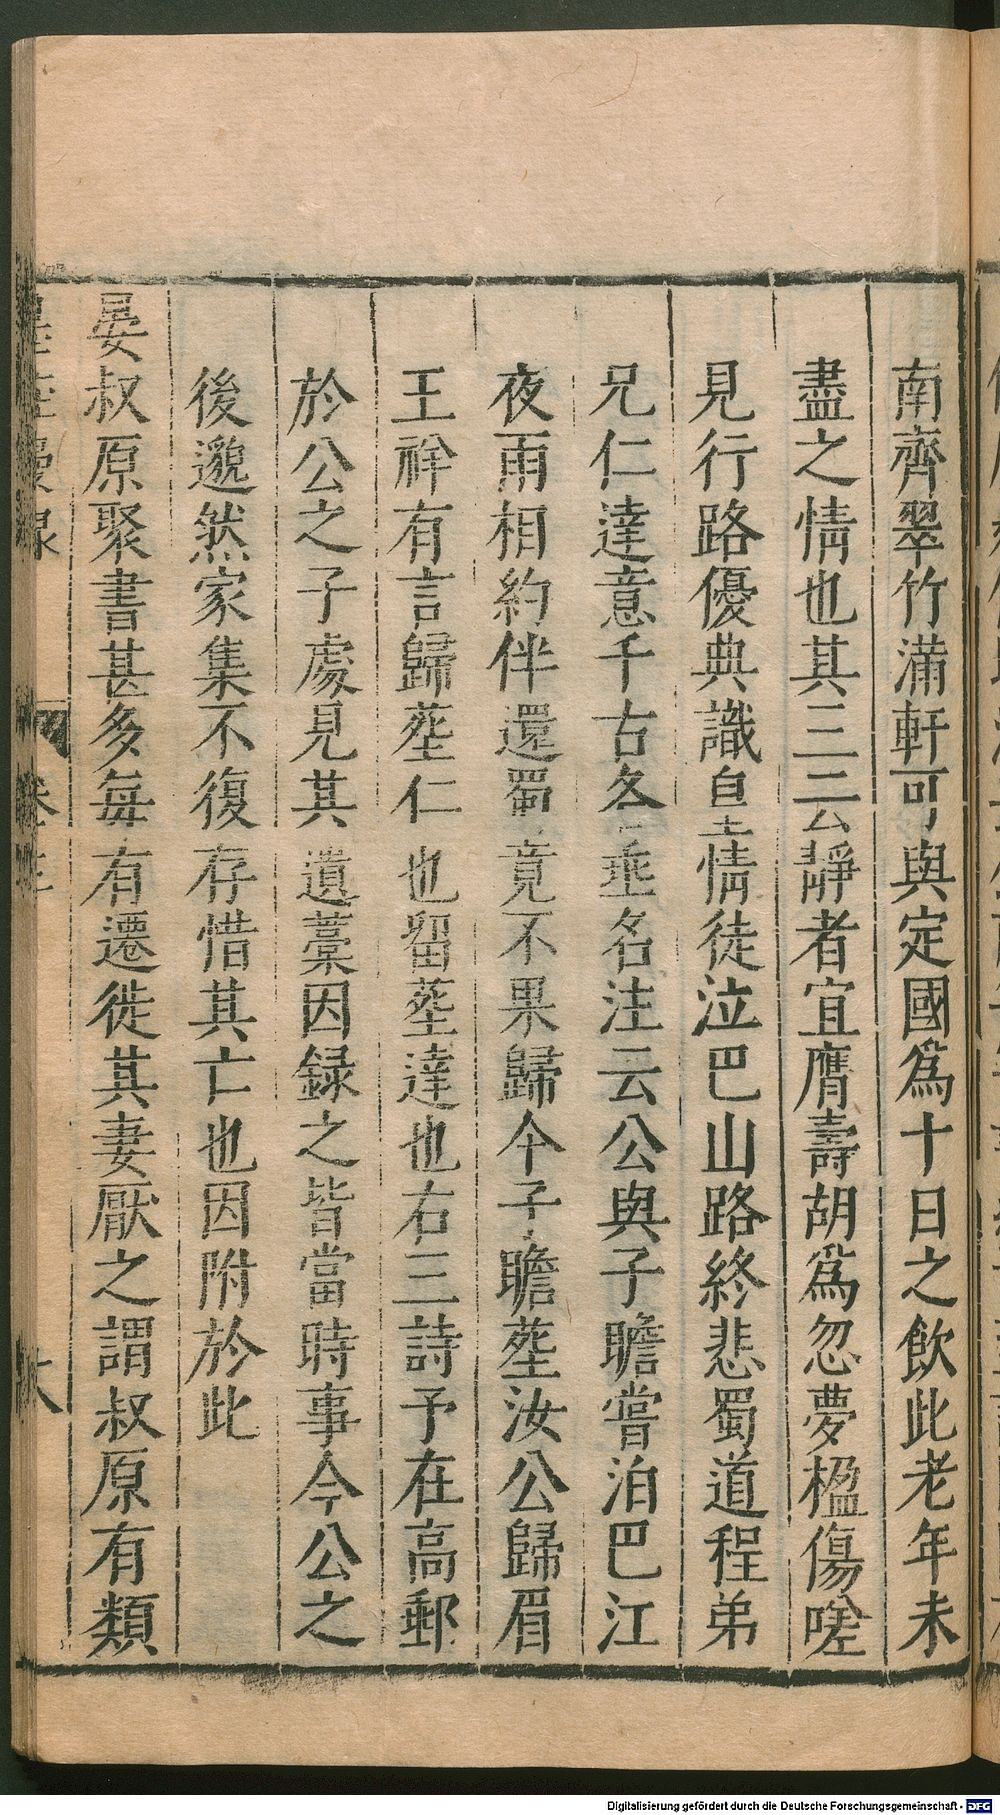 南齊翠竹滿軒可與定國爲十日之飲此老年未
盡之情也其三云靜者宜膺壽胡爲忽夢楹傷嗟
見行路優典識皇情徒泣巴山路終悲蜀道程弟
兄仁達意千古各垂名注云公與子瞻嘗泊巴江
夜雨相約伴還蜀竟不果歸今子瞻塟汝公歸眉
王祥有言歸塟仁也留塟達也右三詩予在高郵
於公之子處見其遺藁因録之皆當時事今公之
後邈然家集不復存惜其亡也因附於此
晏叔原聚書甚多每有遷徙其妻厭之謂叔原有類
墨莊漫録 卷
Digitalisierung gefördert durch die Deutsche Forschungsgemeinschaft - DFG